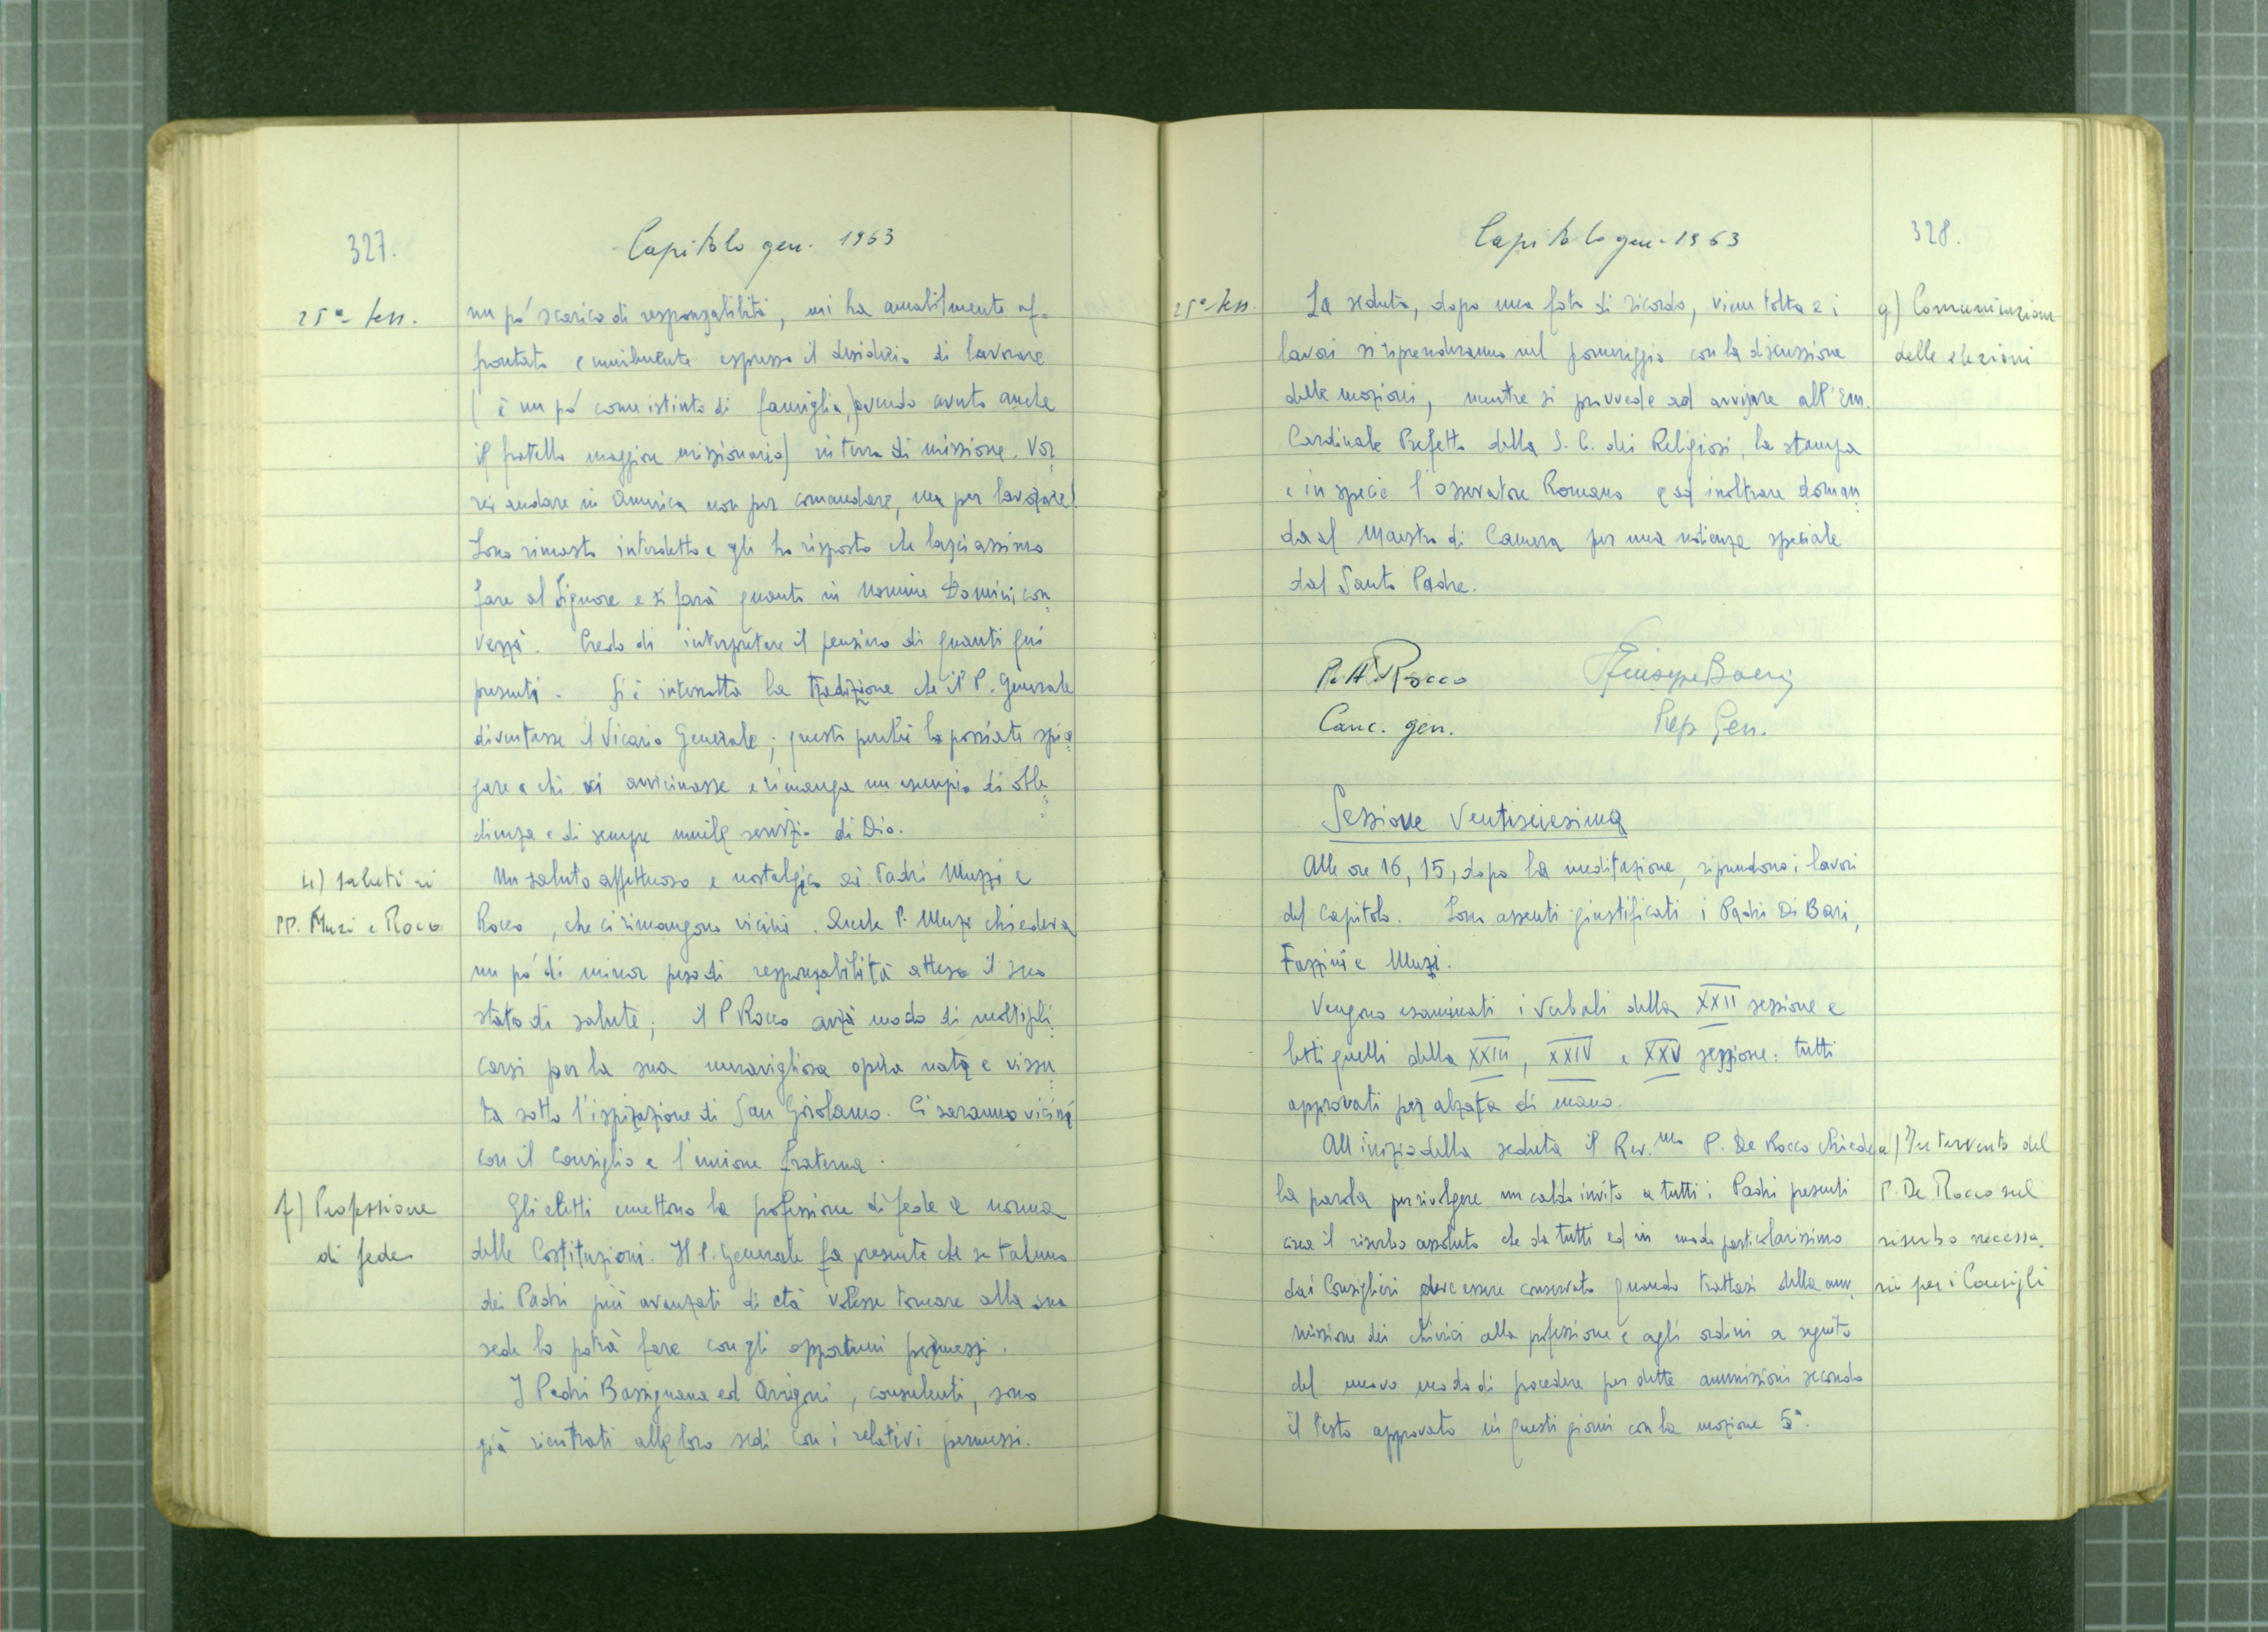 327.
Capitolo gen. 1963
25ª sess.
un pó scarico di responsabilità, mi ha amabilmente af-
frontato e umilmente espresso il desiderio di lavorare
(è un pó come istinto di famiglia, avendo avuto anche
il fratello maggiore missionario) in terra di missione. Vor
rei andare in America non per comandare, ma per lavorare!
Sono rimasto interdetto e gli ho risposto che lasciassimo
fare al Signore e si farà quanto in Nomine Domini con
verrà. Credo di interpretare il pensiero di quanti qui
presenti. Si è interrotta la tradizione che il P. Generale
diventasse il Vicario Generale; questo perché lo possiate spie
gare a chi vi avvicinasse e rimanga un esempio di obbe
dienza e di sempre umile servizio di Dio.
e) saluti ai
PP. Muzi e Rocco
Un saluto affettuoso e nostalgico ai Padri Muzzi e
Rocco, che ci rimangono vicini. Anche P. Muzi chiedeva
un pó di minor peso di responsabilità atteso il suo
stato di salute; il P Rocco avrà modo di moltipli
carsi per la sua meravigliosa opera nata e vissu
ta sotto l'ispirazione di San Girolamo. Ci saranno vicini
con il Consiglio e l'unione fraterna.
f) Professione
di fede
Gli eletti emettono la professione di fede a norma
delle Costituzioni. Il P. Generale fa presente che se taluno
dei Padri più avanzati di età volesse tornare alla sua
sede lo potrà fare con gli opportuni permessi.
I Padri Bassignana ed Arrigoni, consulenti, sono
già rientrati alle loro sedi con i relativi permessi.
Capitolo gen. 1963
328.
25ª sess.
g) Comunicazione
delle elezioni
La seduta, dopo una foto di ricordo, viene tolta e i
lavori si riprenderanno nel pomeriggio con la discussione
delle mozioni, mentre si provvede ad avvisare all'Em.
Cardinale Prefetto della S. C. dei Religiosi, la stampa
e in specie l'Osservatore Romano e ad inoltrare doman
da al Maestro di Camera per una udienza speciale
dal Santo Padre.
P. A. Rocco
Giuseppe Boeris
Canc. gen.
Prep. Gen.
Sessione Ventiseiesima
Alle ore 16,15, dopo la meditazione, riprendono i lavori
del Capitolo. Sono assenti giustificati i Padri Di Bari,
Fazzini e Muzi.
Vengono esaminati i Verbali della XXII sessione e
letti quelli della XXIII, XXIV e XXV sessione: tutti
approvati per alzata di mano.
All'inizio della seduta il Rev.mo P. De Rocco chiede
la parola per rivolgere un caldo invito a tutti i Padri presenti
circa il riserbo assoluto che da tutti ed in modo particolarissimo
dai Consiglieri deve essere conservato quando trattasi della am
missione dei chierici alla professione e agli ordini a seguito
del nuovo modo di procedere per dette ammissioni secondo
il testo approvato in questi giorni con la mozione 5ª.
a) Intervento del
P. De Rocco sul
riserbo necessa
rio per i Consigli